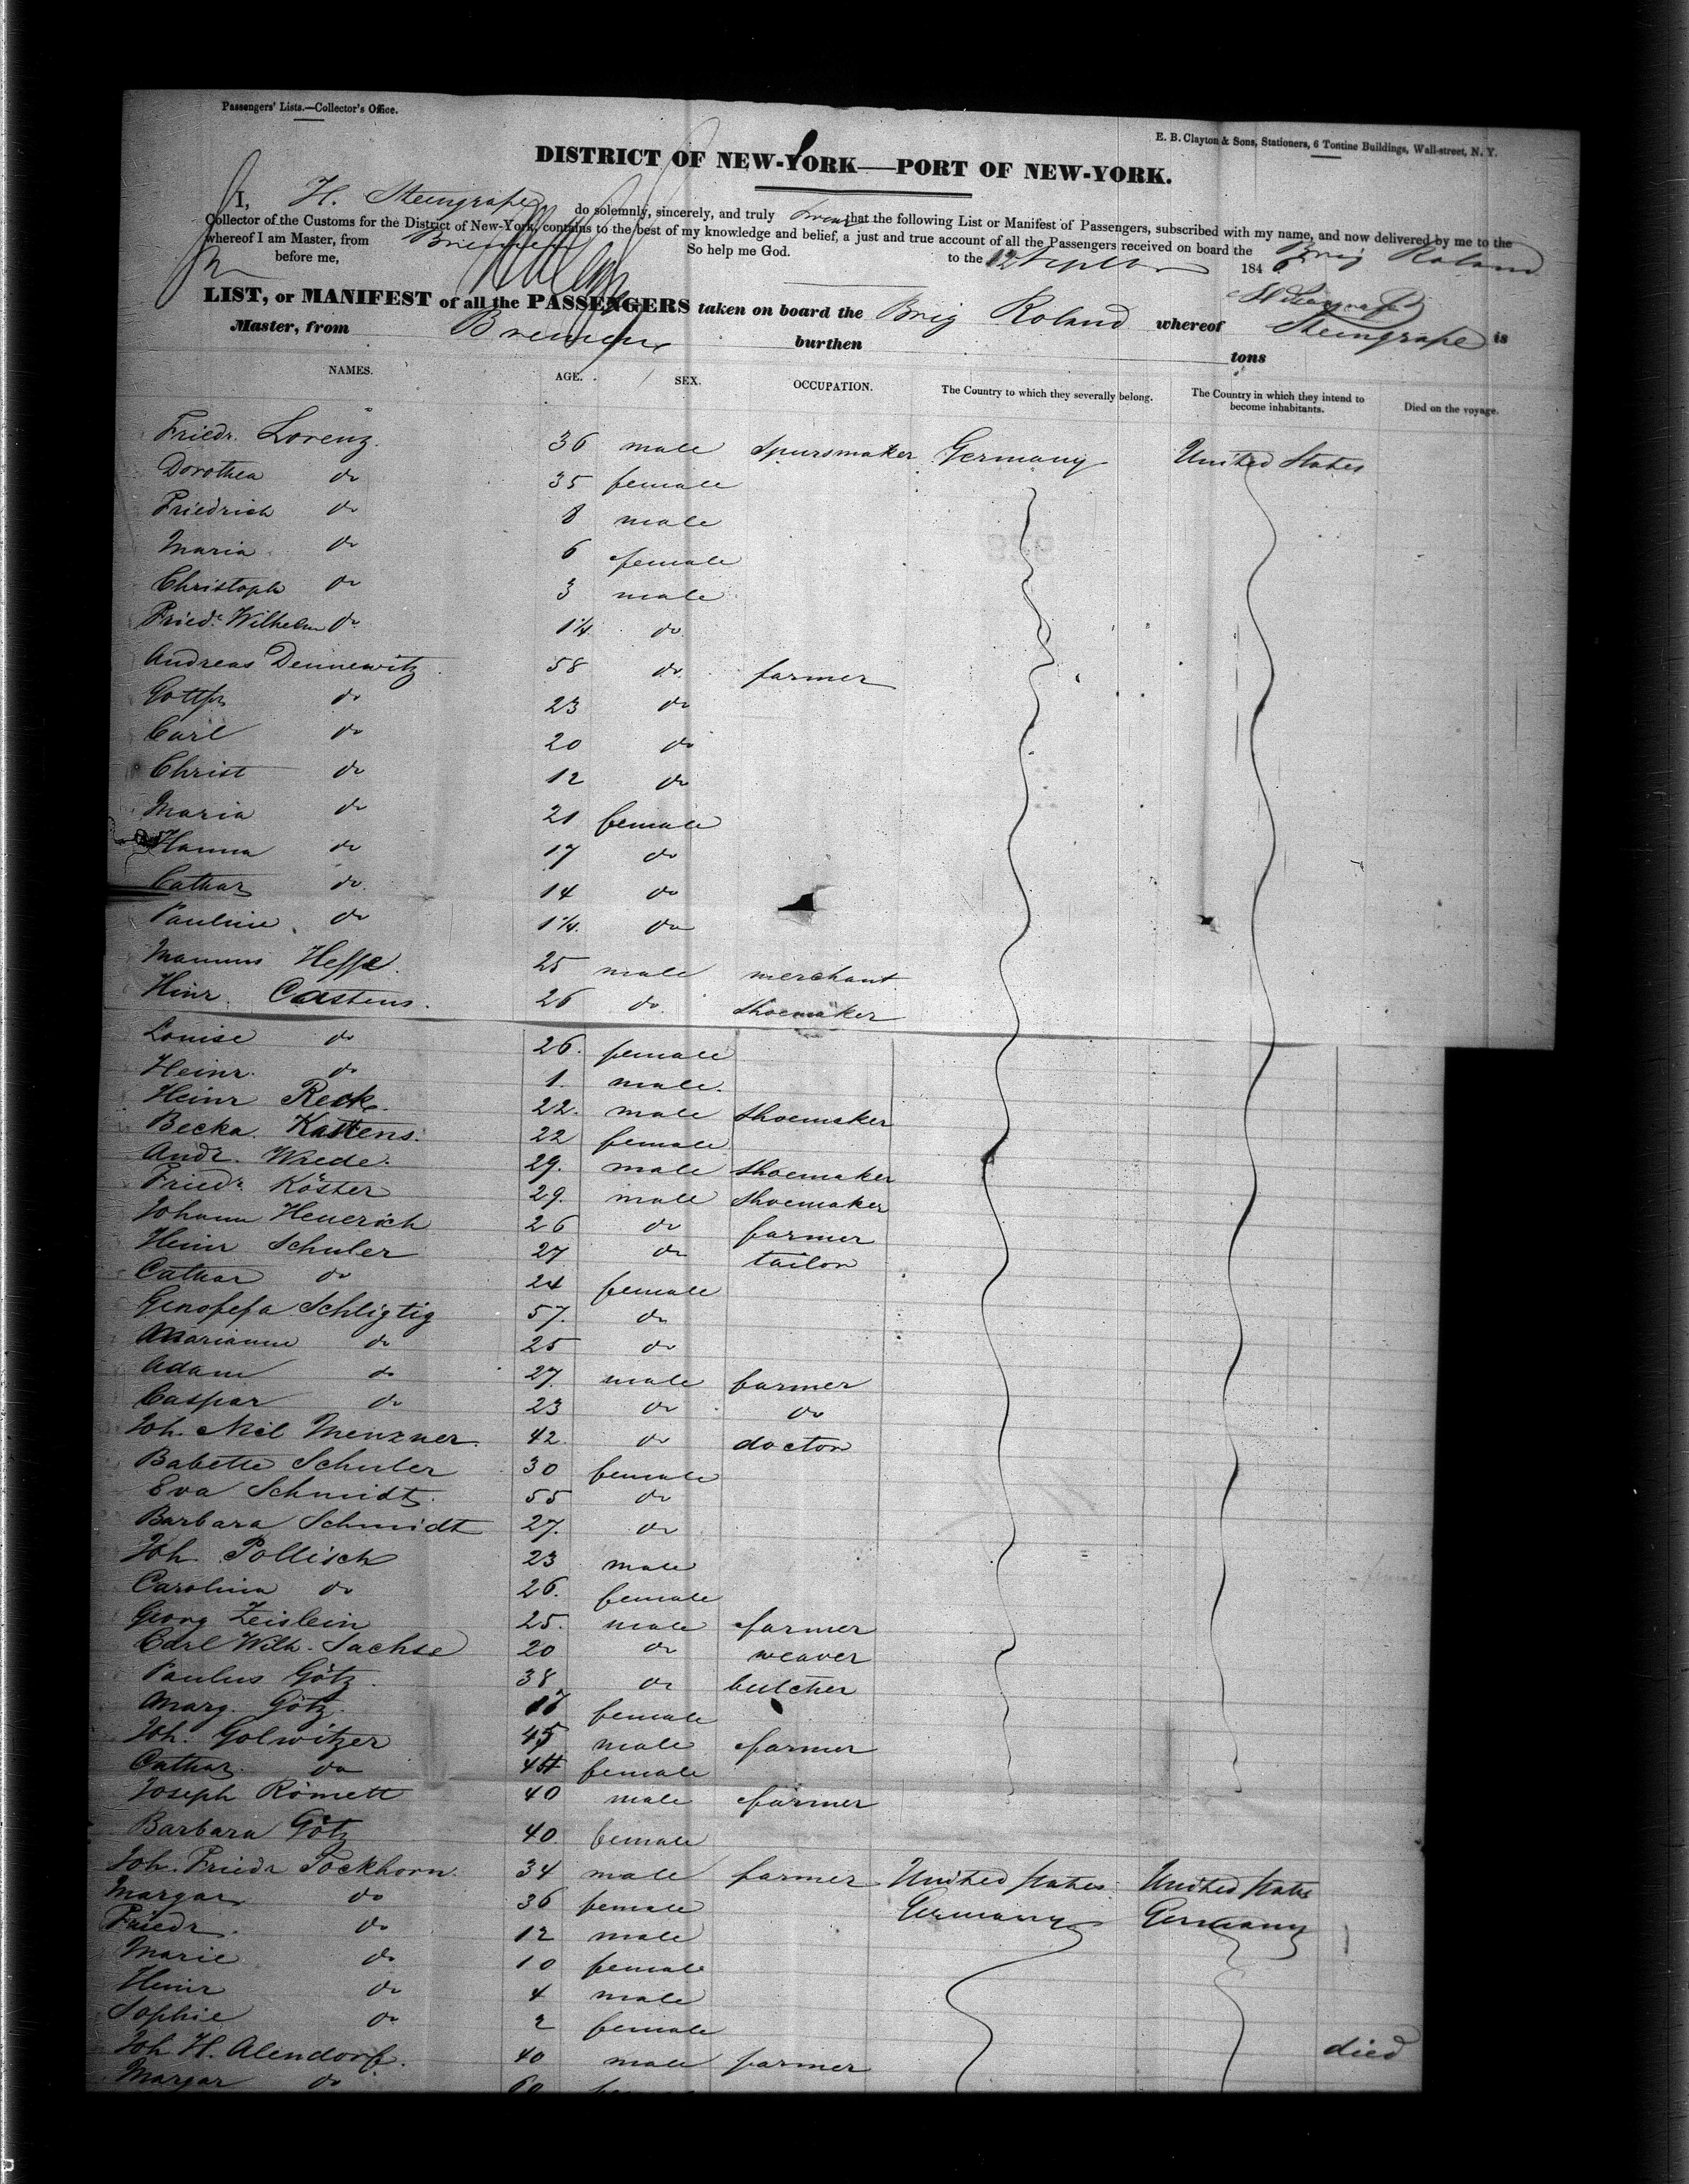 Passengers' Lists.—Collector's Office.
E. B. Clayton & Sons, Stationers, 6 Tontine Buildings, Wall-street, N. Y.
DISTRICT OF NEW-YORK—PORT OF NEW-YORK.
I, H. Steengrafe do solemnly, sincerely, and truly swear that the following List or Manifest of Passengers, subscribed with my name, and now delivered by me to the
Collector of the Customs for the District of New-York, contains to the best of my knowledge and belief, a just and true account of all the Passengers received on board the Brig Roland
whereof I am Master, from Bremen So help me God.
before me, to the 12 Septbr 1846
H Steengrafe
LIST, or MANIFEST of all the PASSENGERS taken on board the Brig Roland whereof Steengrafe is
Master, from Bremen burthen tons
NAMES. AGE. SEX. OCCUPATION. The Country to which they severally belong. The Country in which they intend to become inhabitants. Died on the voyage.
Friedr. Lorenz. 36 male Spursmaker Germany United States
Dorothea do 35 female
Friedrich do 8 male
Maria do 6 female
Christoph do 3 male
Fried. Wilhelm do 1¼ do
Andreas Dennewitz 58 do farmer
Gottfr do 23 do
Carl do 20 do
Christ do 12 do
Maria do 21 female
Hanna do 17 do
Cathar do 14 do
Pauline do 1¼ do
Mannus Hesse. 25 male merchant
Hinr. Castens. 26 do shoemaker
Louise do 26. female
Heinr. do 1. male.
Heinr Recke. 22. male shoemaker
Becka. Kastens. 22 female
Andr. Wrede. 29. male shoemaker
Friedr Köster 29. male shoemaker
Johann Heuerich 26 do farmer
Heinr Schuler 27 do tailor
Cathar do 24 female
Genofefa Schligtig 57. do
Marianne do 25 do
Adam do 27. male farmer
Caspar do 23 do do
Joh. Nicl Menzner. 42. do doctor
Babette Schuler 30 female
Eva Schmidt. 55 do
Barbara Schmidt 27. do
Joh. Pollisch 23 male
Carolina do 26. female
Georg Zeislein 25. male farmer
Carl Wilh. Sachse 20 do weaver
Paulus Götz. 38 do butcher
Marg. Götz. 17 female
Joh. Golwitzer 45 male farmer
Cathar. do female
Joseph Römett 40 male farmer
Barbara Götz 40. female
Joh. Friedr Pockhorn. 34 male farmer United States United States
Margar do 36 female Germany Germany
Friedr. do 12 male
Marie do 10 female
Heinr do 4 male
Sophie do 2 female
Joh H. Alendorf. 40 male farmer died
Margar do 60